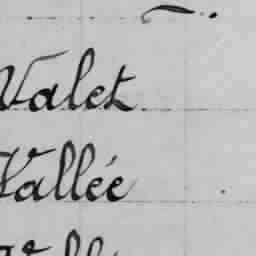 Valet
Vallée